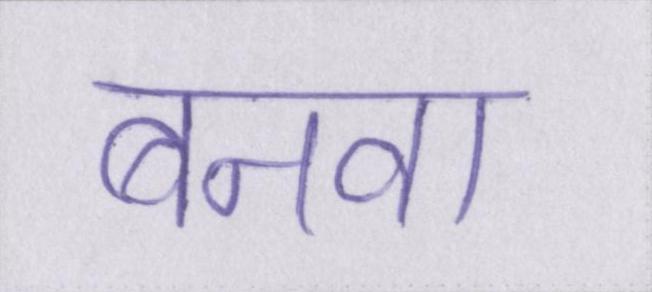 बनवा